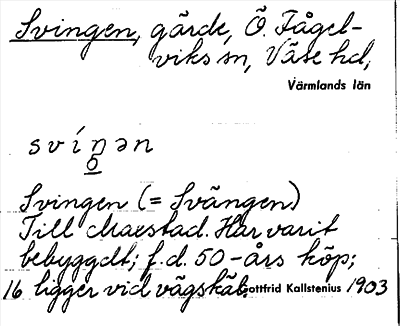 Svingen, gärde, Ö. Fågel-
viks sn, Väse hd,
Värmlands län
svíŋən
Svingen (= Svängen)
Till Marstad. Har varit
bebyggdt; f.d. 50-års köp;
16 ligger vid vägskäl. Gottfrid Kallstenius 1903